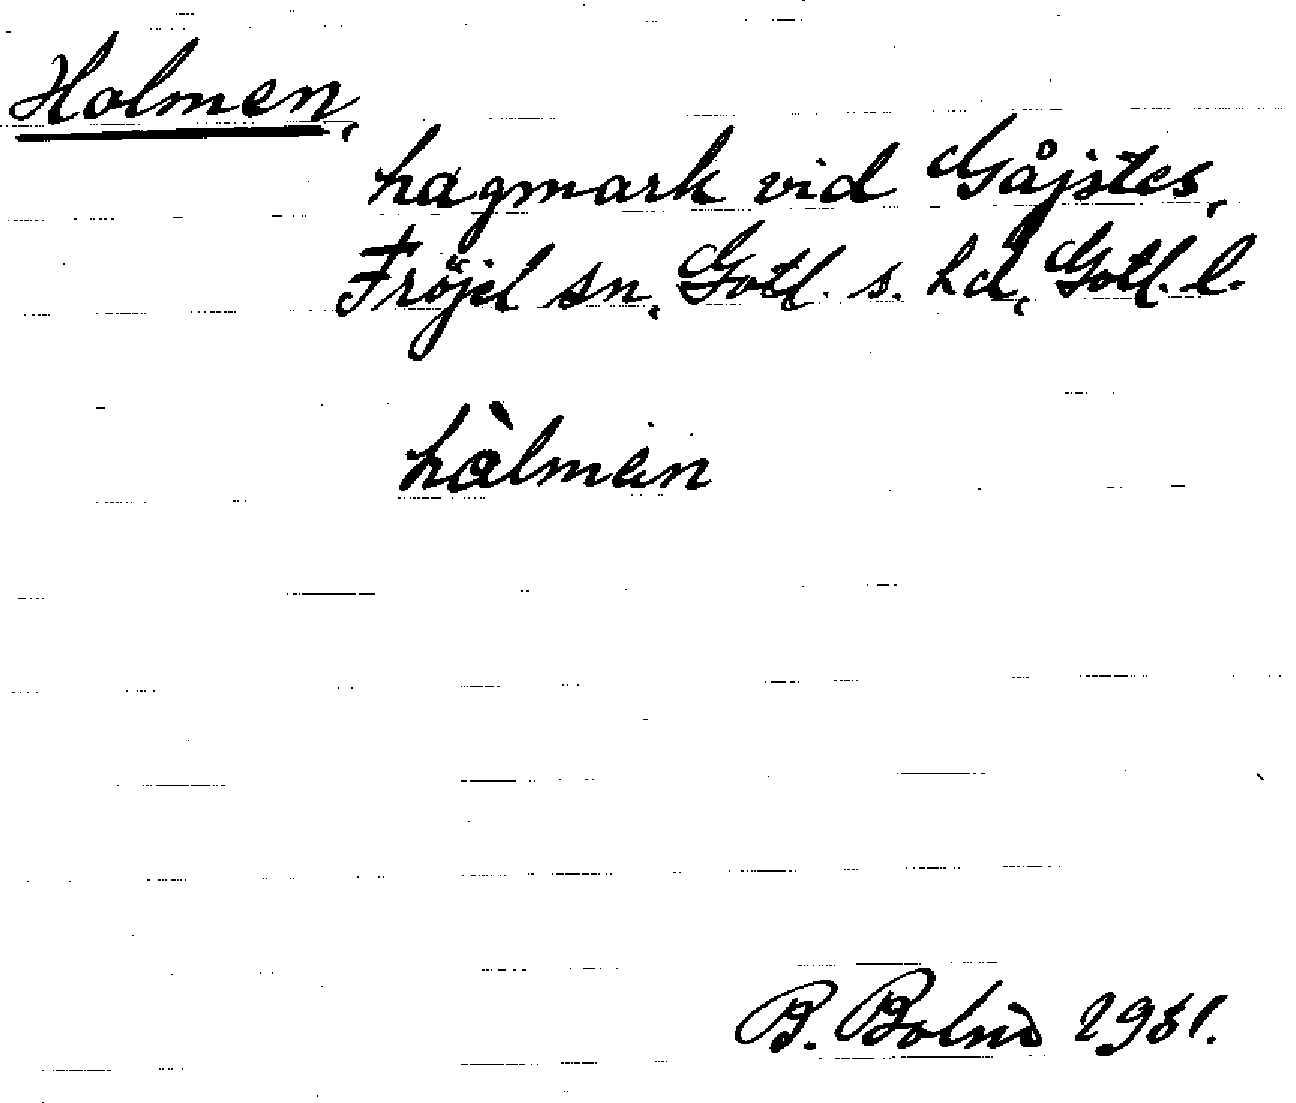 Holmen,
hagmark vid Gåjstes,
Fröjel sn, Gotl. s. hd, Gotl. l.
hàlmen
B. Bolin